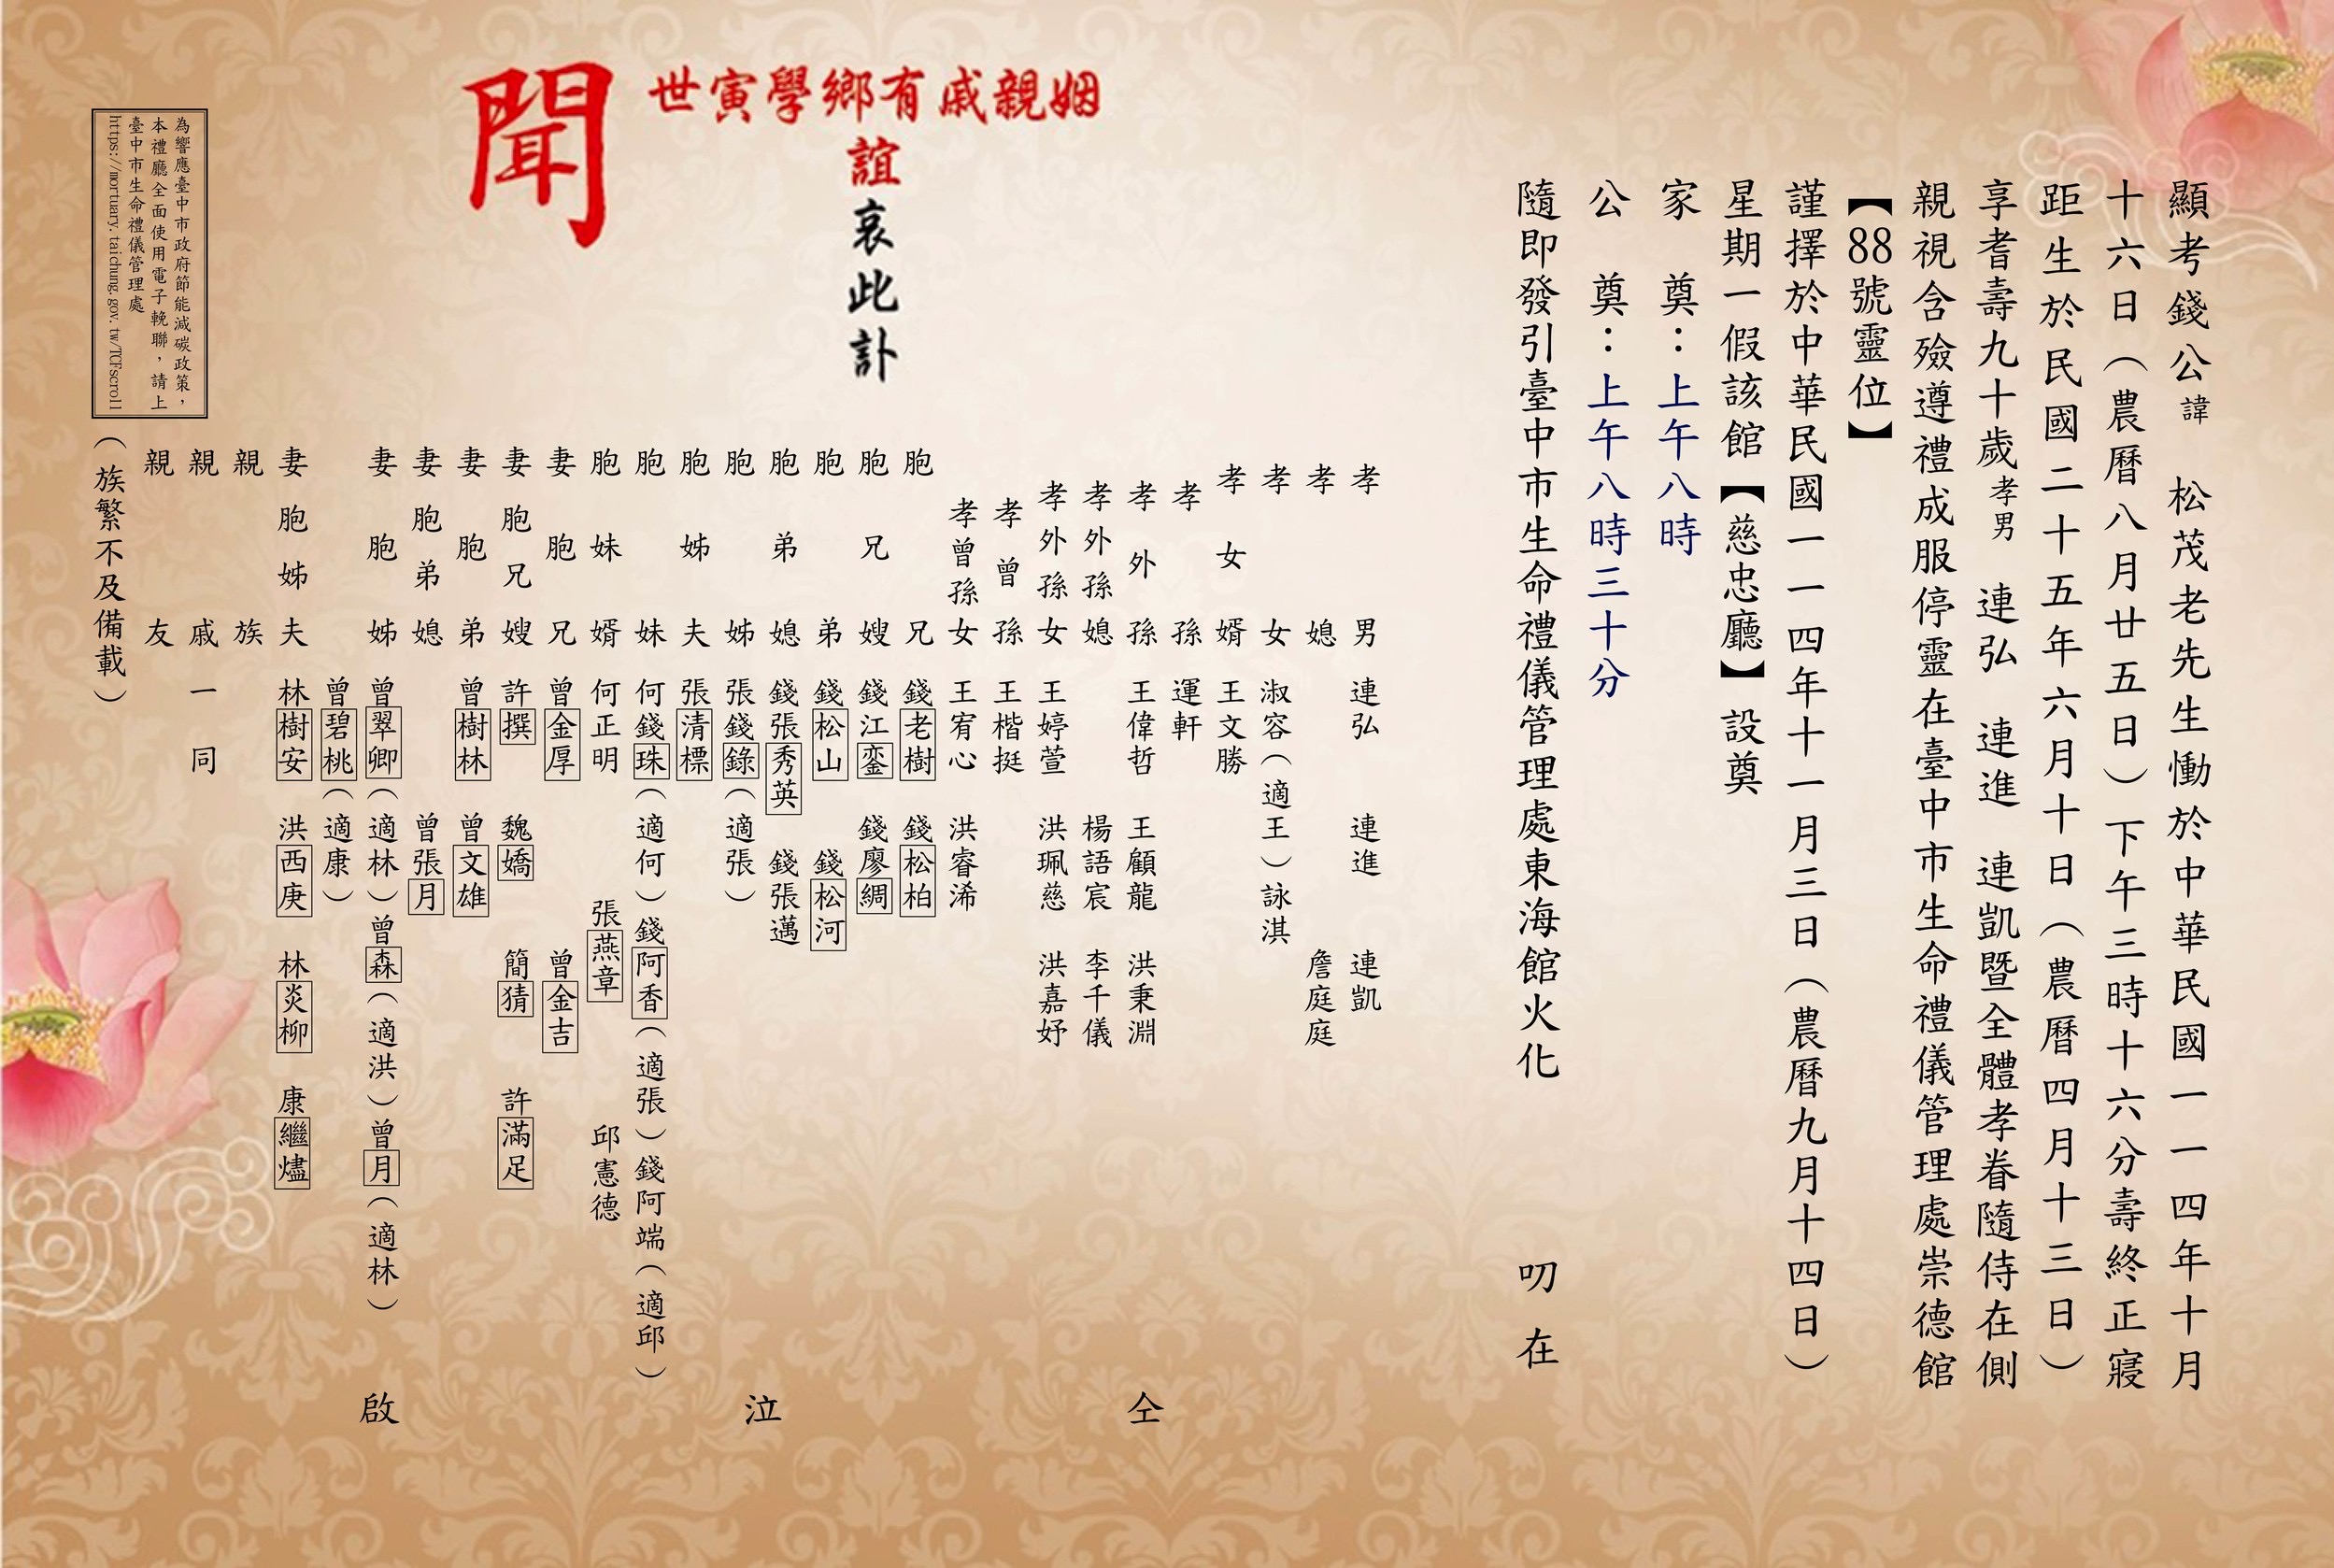 顯考錢公諱　松茂老先生慟於中華民國一一四年十月
十六日（農曆八月廿五日）下午三時十六分壽終正寢
距生於民國二十五年六月十日（農曆四月十三日）
享耆壽九十歲孝男　連弘　連進　連凱暨全體孝眷隨侍在側
親視含殮遵禮成服停靈在臺中市生命禮儀管理處崇德館
【88號靈位】
謹擇於中華民國一一四年十一月三日（農曆九月十四日）
星期一假該館【慈忠廳】設奠
家　奠：上午八時
公　奠：上午八時三十分
隨即發引臺中市生命禮儀管理處東海館火化　叨在
姻親戚有鄉學寅世
誼哀此訃
聞
孝男　連弘　連進　連凱
孝媳　詹庭庭
孝女　淑容（適王）詠淇
孝女婿　王文勝
孝孫　運軒
孝外孫　王偉哲　王顧龍　洪秉淵
孝外孫媳　楊語宸　李千儀
孝外孫女　王婷萱　洪珮慈　洪嘉妤
孝曾孫　王楷挺
孝曾孫女　王宥心　洪睿浠
胞兄　錢老樹　錢松柏
胞兄嫂　錢江鑾　錢廖綢
胞弟　錢松山　錢松河
胞弟媳　錢張秀英　錢張邁
胞姊　張錢錄（適張）
胞姊夫　張清標
胞妹　何錢珠（適何）錢阿香（適張）錢阿端（適邱）
胞妹婿　何正明　張燕章　邱憲德
妻胞兄　曾金厚　曾金吉
妻胞兄嫂　許撰　魏嬌　簡猜　許滿足
妻胞弟　曾樹林　曾文雄
妻胞弟媳　曾張月
妻胞姊　曾翠卿（適林）曾森（適洪）曾月（適林）
曾碧桃（適康）
妻胞姊夫　林樹安　洪西庚　林炎柳　康繼燼
親族
親戚一同
親友
（族繁不及備載）
仝　泣　啟
為響應臺中市政府節能減碳政策，
本禮廳全面使用電子輓聯，請上
臺中市生命禮儀管理處
https://mortuary.taichung.gov.tw/TCFscroll